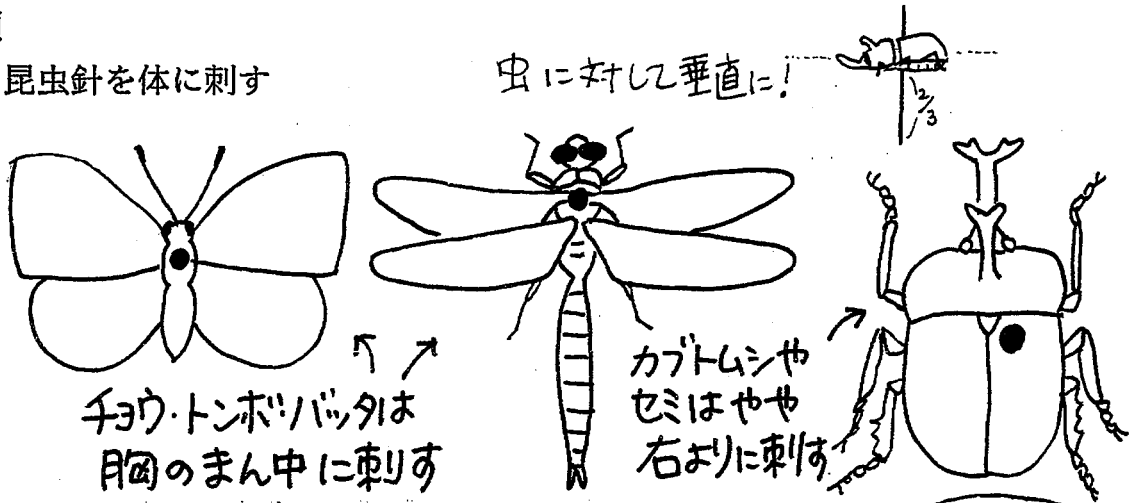 昆虫針を体に刺す
虫に対して垂直に!
2/3
チョウ・トンボ・バッタは
胸のまん中に刺す
カブトムシや
セミはやや
右よりに刺す